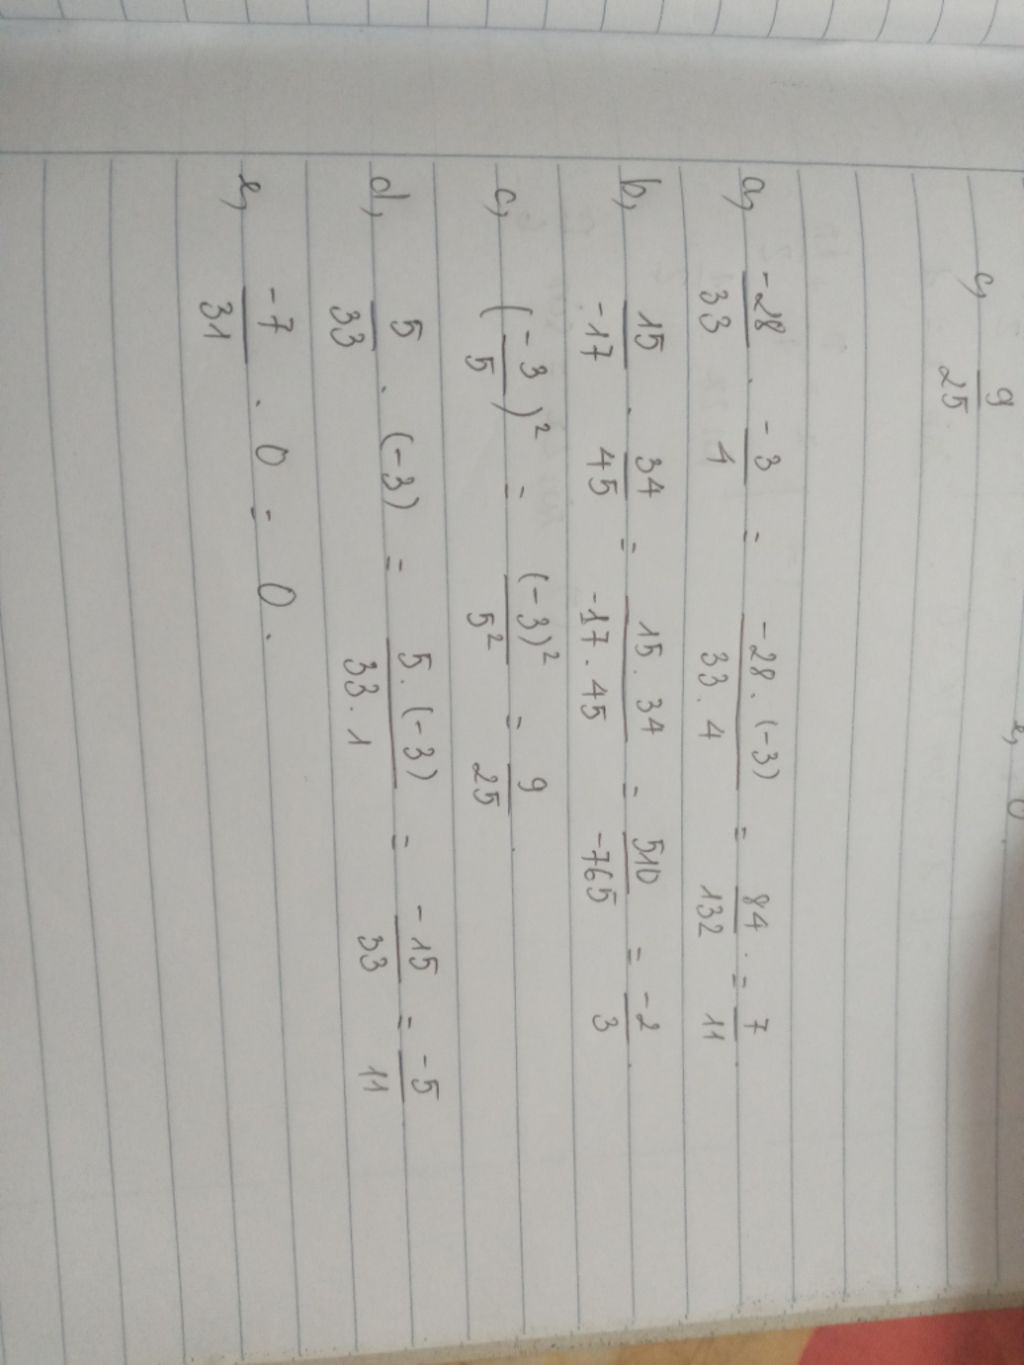 c, 9/25
e, 0
a, -28/33 . -3/4 = -28.(-3)/33.4 = 84/132 . = 7/11
b, 15/-17 . 34/45 = 15.34/-17.45 = 510/-765 = -2/3
c, (-3/5)² = (-3)²/5² = 9/25
d, 5/33 . (-3) = 5.(-3)/33.1 = -15/33 = -5/11
e, -7/31 . 0 = 0.